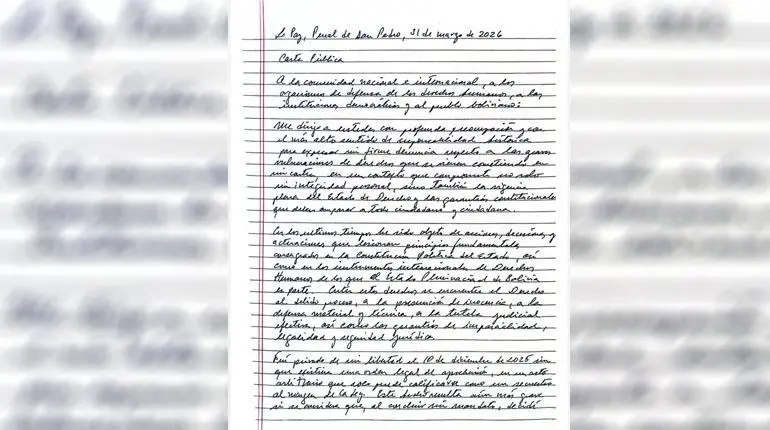 La Paz, Penal de San Pedro, 31 de marzo de 2026
Carta Pública
A la comunidad nacional e internacional, a los
organismos de defensa de los derechos humanos, a las
instituciones democráticas y al pueblo boliviano:
Me dirijo a ustedes con profunda preocupación y con
el más alto sentido de responsabilidad histórica
para expresar mi firme denuncia respecto a las graves
vulneraciones de derechos que se vienen cometiendo en
mi contra, en un contexto que compromete no solo
mi integridad personal, sino también la vigencia
plena del Estado de Derecho y las garantías constitucionales
que deben amparar a todo ciudadano y ciudadana.
En los últimos tiempos he sido objeto de acciones, decisiones y
actuaciones que lesionan principios fundamentales
consagrados en la Constitución Política del Estado, así
como en los instrumentos internacionales de Derechos
Humanos de los que el Estado Plurinacional de Bolivia
es parte. Entre estos derechos se encuentra el Derecho
al debido proceso, a la presunción de inocencia, a la
defensa material y técnica, a la tutela judicial
efectiva, así como las garantías de imparcialidad,
legalidad y seguridad jurídica.
Fui privado de mi libertad el 10 de diciembre de 2025 sin
que existiera una orden legal de aprehensión, en un acto
arbitrario que solo puede calificarse como un secuestro
al margen de la ley. Este hecho resulta aún más grave
si se considera que, al concluir mi mandato, decidí